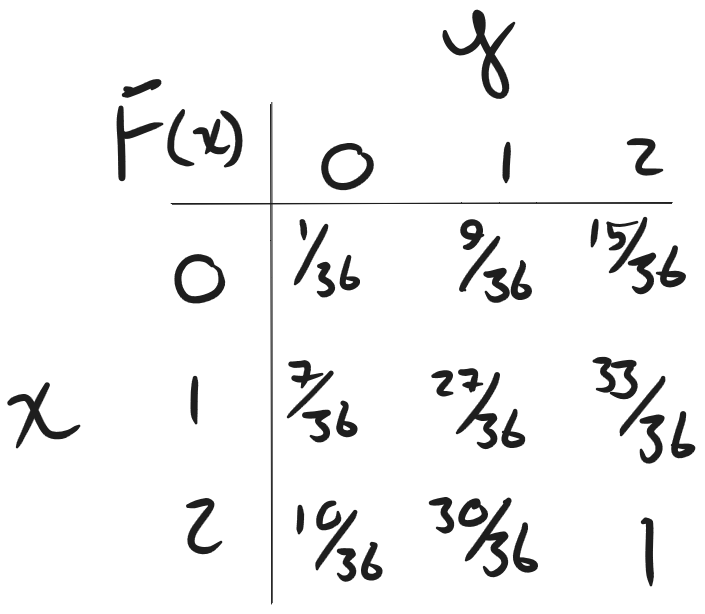 y
F(x) 0 1 2
0 1/36 9/36 15/36
x 1 7/36 27/36 33/36
2 10/36 30/36 1